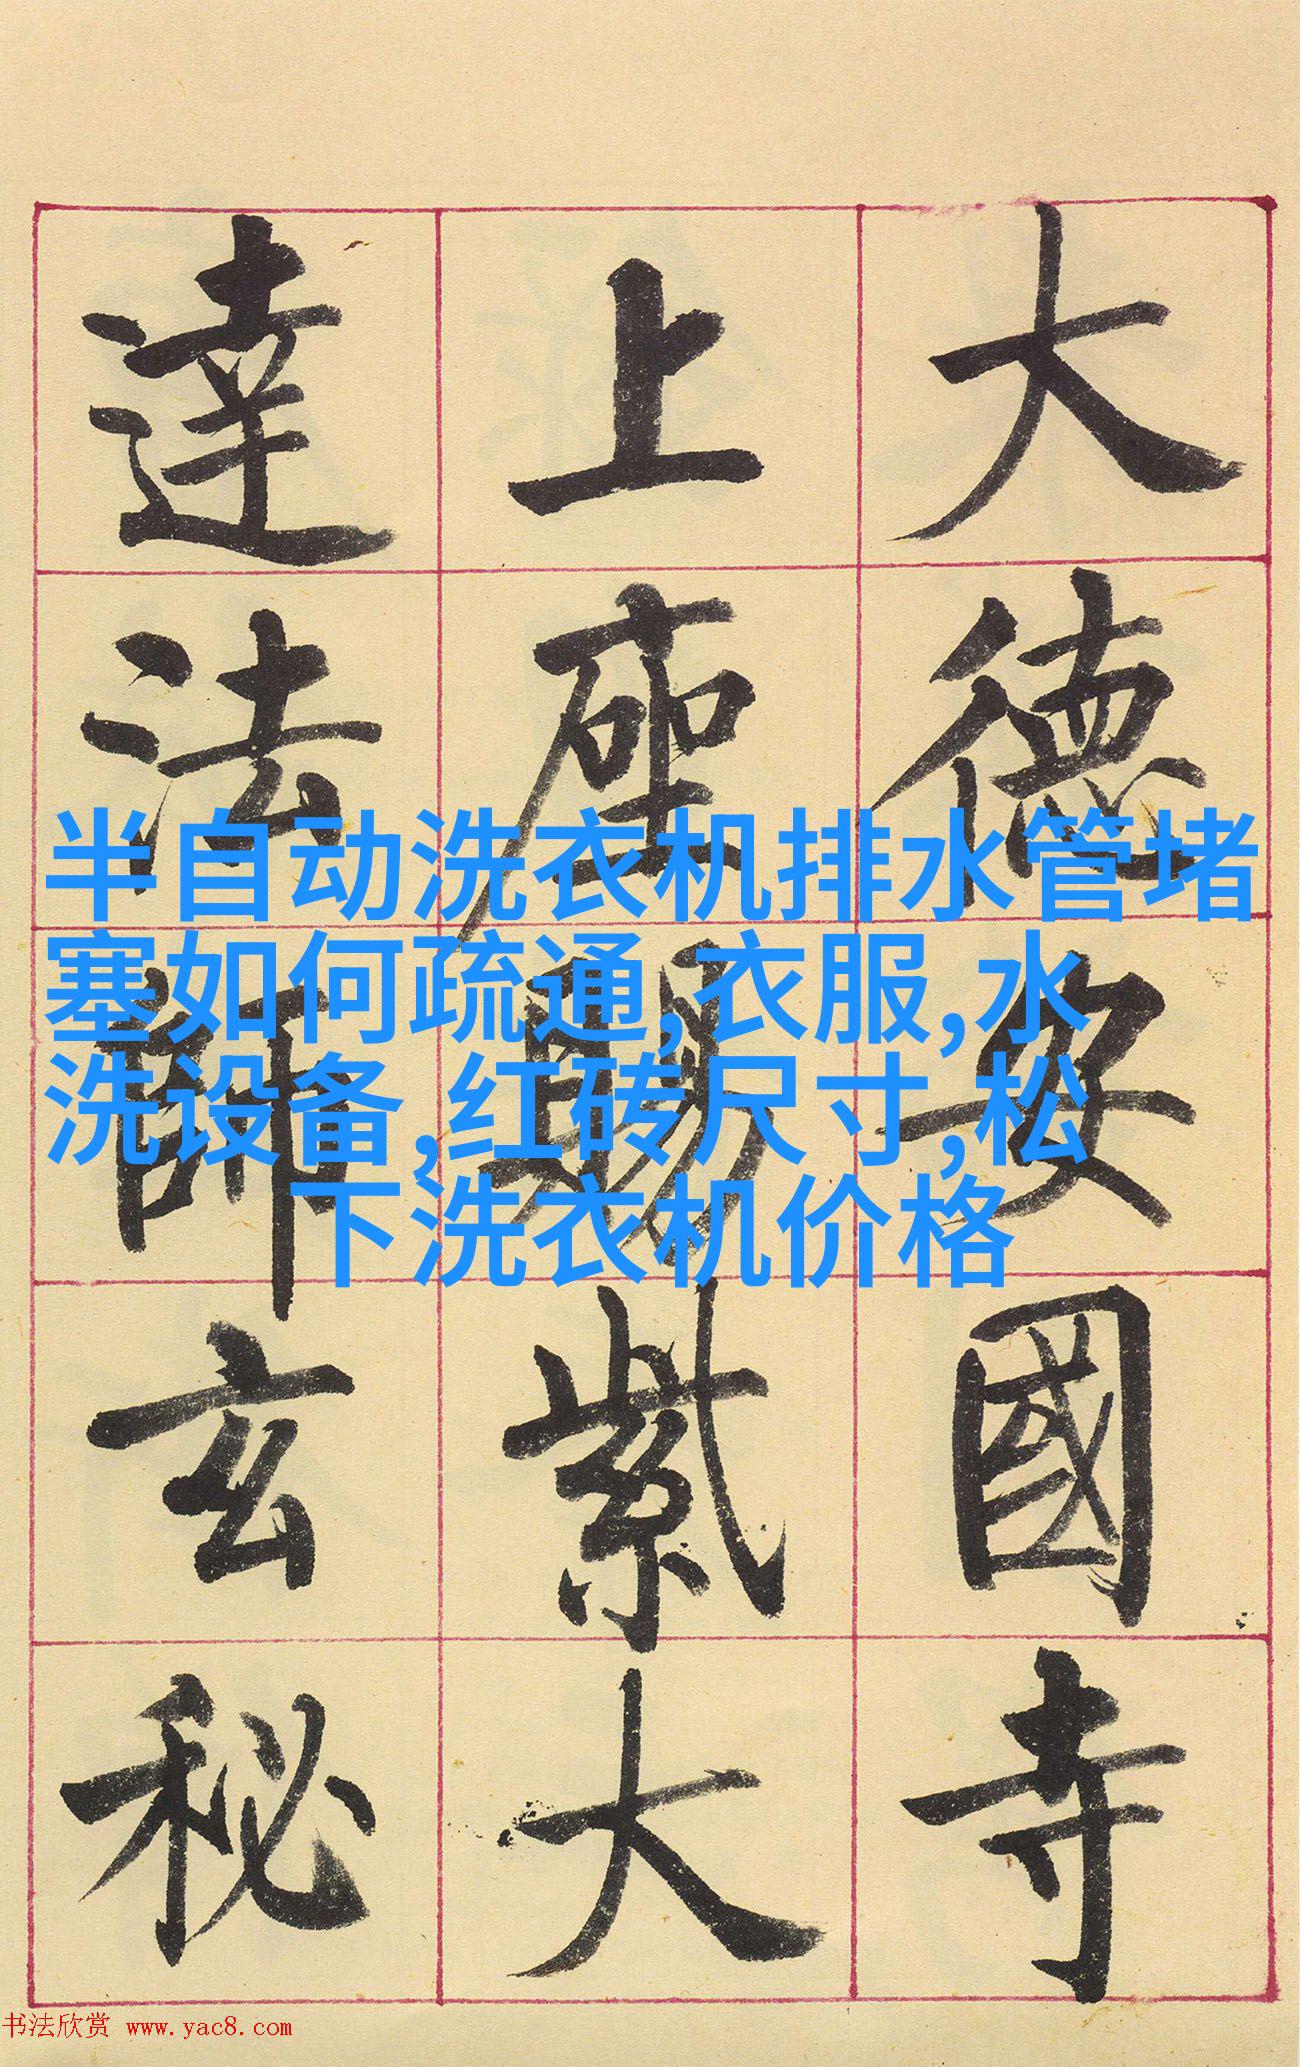 大德安國寺
上座賜紫大
達法師玄秘
半自动洗衣机排水管堵
塞如何疏通,衣服,水
洗设备,红砖尺寸,松
下洗衣机价格
书法欣赏 www.yac8.com